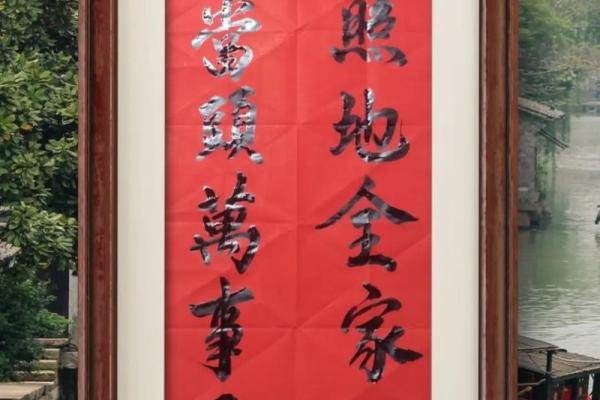 照地全家
當頭萬事